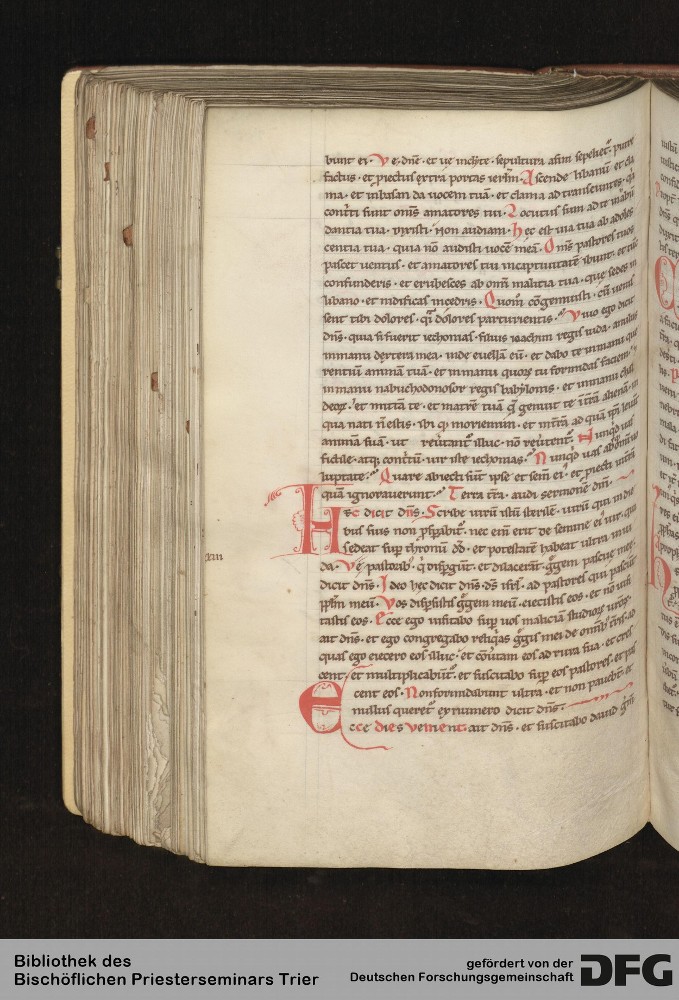 bunt ei · Ve dñe · et ve inclyte · sepultura asini sepeliet̄ · putre
factus · et ꝓiectus extra portas ierlm̄ · Ascende libanū · et cla
ma · et in basan da vocem tuā · et clama ad transeuntes · q̄a
cont̄ti sunt om̄s amatores tui · Locutus sum ad te in abūn
dantia tua · dixisti · Non audiam · hec est via tua ab adoles
centia tua · quia nō audisti vocē meā · Om̄s pastores tuos
pascet ventus · et amatores tui in captiuitatē ibunt · et tūc
confunderis · et erubesces ab omī malitia tua · que sedes in
libano · et nidificas in cedris · Quom̄ cōgemuisti · cū venis
sent tibi dolores · q̄i dolores parturientis · Viuo ego dicit
dn̄s · quia si fuerit iechonias · filius ioachim regis iuda · anulus
in manu dextera mea · inde euellā eū · et dabo te in manu que
rentiū animam tuā · et in manu quoꝝ tu formidas faciem ·
in manu nabuchodonosor regis babylonis · et in manu chal
deoꝝ · et mittā te · et matrē tuā q̄ genuit te in t̄rā alienā · in
qua nati nō estis · ibi q̨ moriemini · et in t̄rā ad quā ip̄i leuāt
animā suā · ut reūtant̄ illuc · nō reūtent̄ · Nunq̄d vas
fictile · atq; cont̄tū · vir iste iechonias · Nunq̄d vas absq̨ om̄i uo
luptate · Quare abiecti sūt ipse et sem̄ ei9 · et ꝓiecti in t̄rā
quā ignorauerunt · Terra t̄ra · audi sermonē dn̄i ·
Hec dicit dn̄s · Scribe virū istū sterilē · virū qui in die
bus suis non ꝓsꝑabit̄ · nec eni erit de semine ei9 vir · qui
sedeat suꝑ thronū dd̄ · et potestatē habeat ultra in iu
xiii
da · Ve pastorib9 · q̨ disꝑgūt · et dilacerāt · gͤgem pascue mee ·
dicit dn̄s · Ideo hec dicit dn̄s · ds̄ isrl̄ · ad pastores qui pascūt
ꝓplm̄ meū · Vos disꝑsistis gͤgem meū · eiecistis eos · et nō uisi
tastis eos · Ecce ego uisitabo suꝑ uos maliciā studioꝝ uroꝝ ·
ait dn̄s · et ego congregabo reliq̄as gͤgis mei de omib9 t̄ris · ad
quas ego eiecero eos illuc · et cōūtam eos ad rura sua · et cres
cent · et multiplicabūt̄ · et suscitabo suꝑ eos pastores · et pas
cent eos · Non formidabunt ultra · et non pauebt̄ · et
nullus queret̄ ex numero dicit dn̄s ·
Ecce dies venient · ait dn̄s · et suscitabo dauid gͤm
Bibliothek des
Bischöflichen Priesterseminars Trier
gefördert von der
Deutschen Forschungsgemeinschaft
DFG